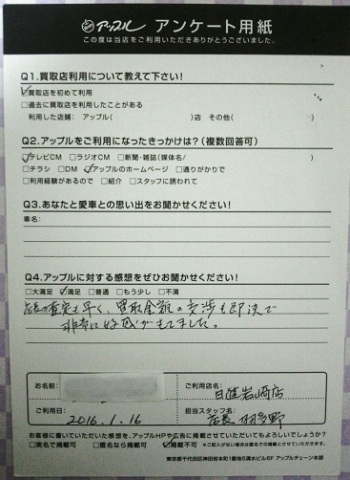 アップル アンケート用紙
この度は当店をご利用いただきありがとうございました。
Q1.買取店利用について教えて下さい!
☑買取店を初めて利用
□過去に買取店を利用したことがある
利用した店舗: アップル( )店 その他( )
Q2.アップルをご利用になったきっかけは?(複数回答可)
☑テレビCM □ラジオCM □新聞・雑誌(媒体名/ )
□チラシ □DM ☑アップルのホームページ □通りがかりで
□利用経験があるので □紹介 □スタッフに誘われて
Q3.あなたと愛車との思い出をお聞かせください!
車名:
Q4.アップルに対する感想をぜひお聞かせください!
□大満足 ☑満足 □普通 □もう少し □不満
査定も早く、買取金額の交渉も即決で
非常に好感がもてました。
お名前:
ご利用店名:
日進岩崎店
ご利用日:
2016.1.16
担当スタッフ名:
店長 羽多野
お客様に書いていただいた感想を、アップルHPや広告に掲載させていただいてもよろしいでしょうか?
□実名で掲載可 □匿名なら掲載可 ☑掲載不可
東京都千代田区神田佐久間町1番地 アップルチェーン本部